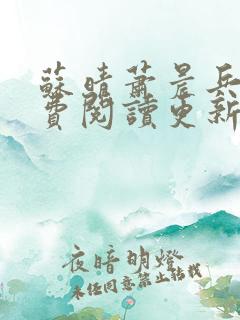 蘇晴蕭晨兵
費閱讀更新
夜暗明燈
未经同意禁止转载